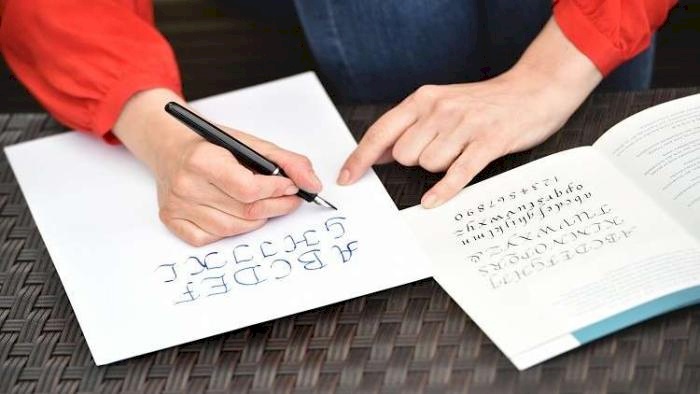 ABCDEF
GHIJKL
ABCDEFGHIJ
KLMNOPQRS
TUVWXYZ&
abcdefghijklmn
opqrsßtuvwxyz
1234567890